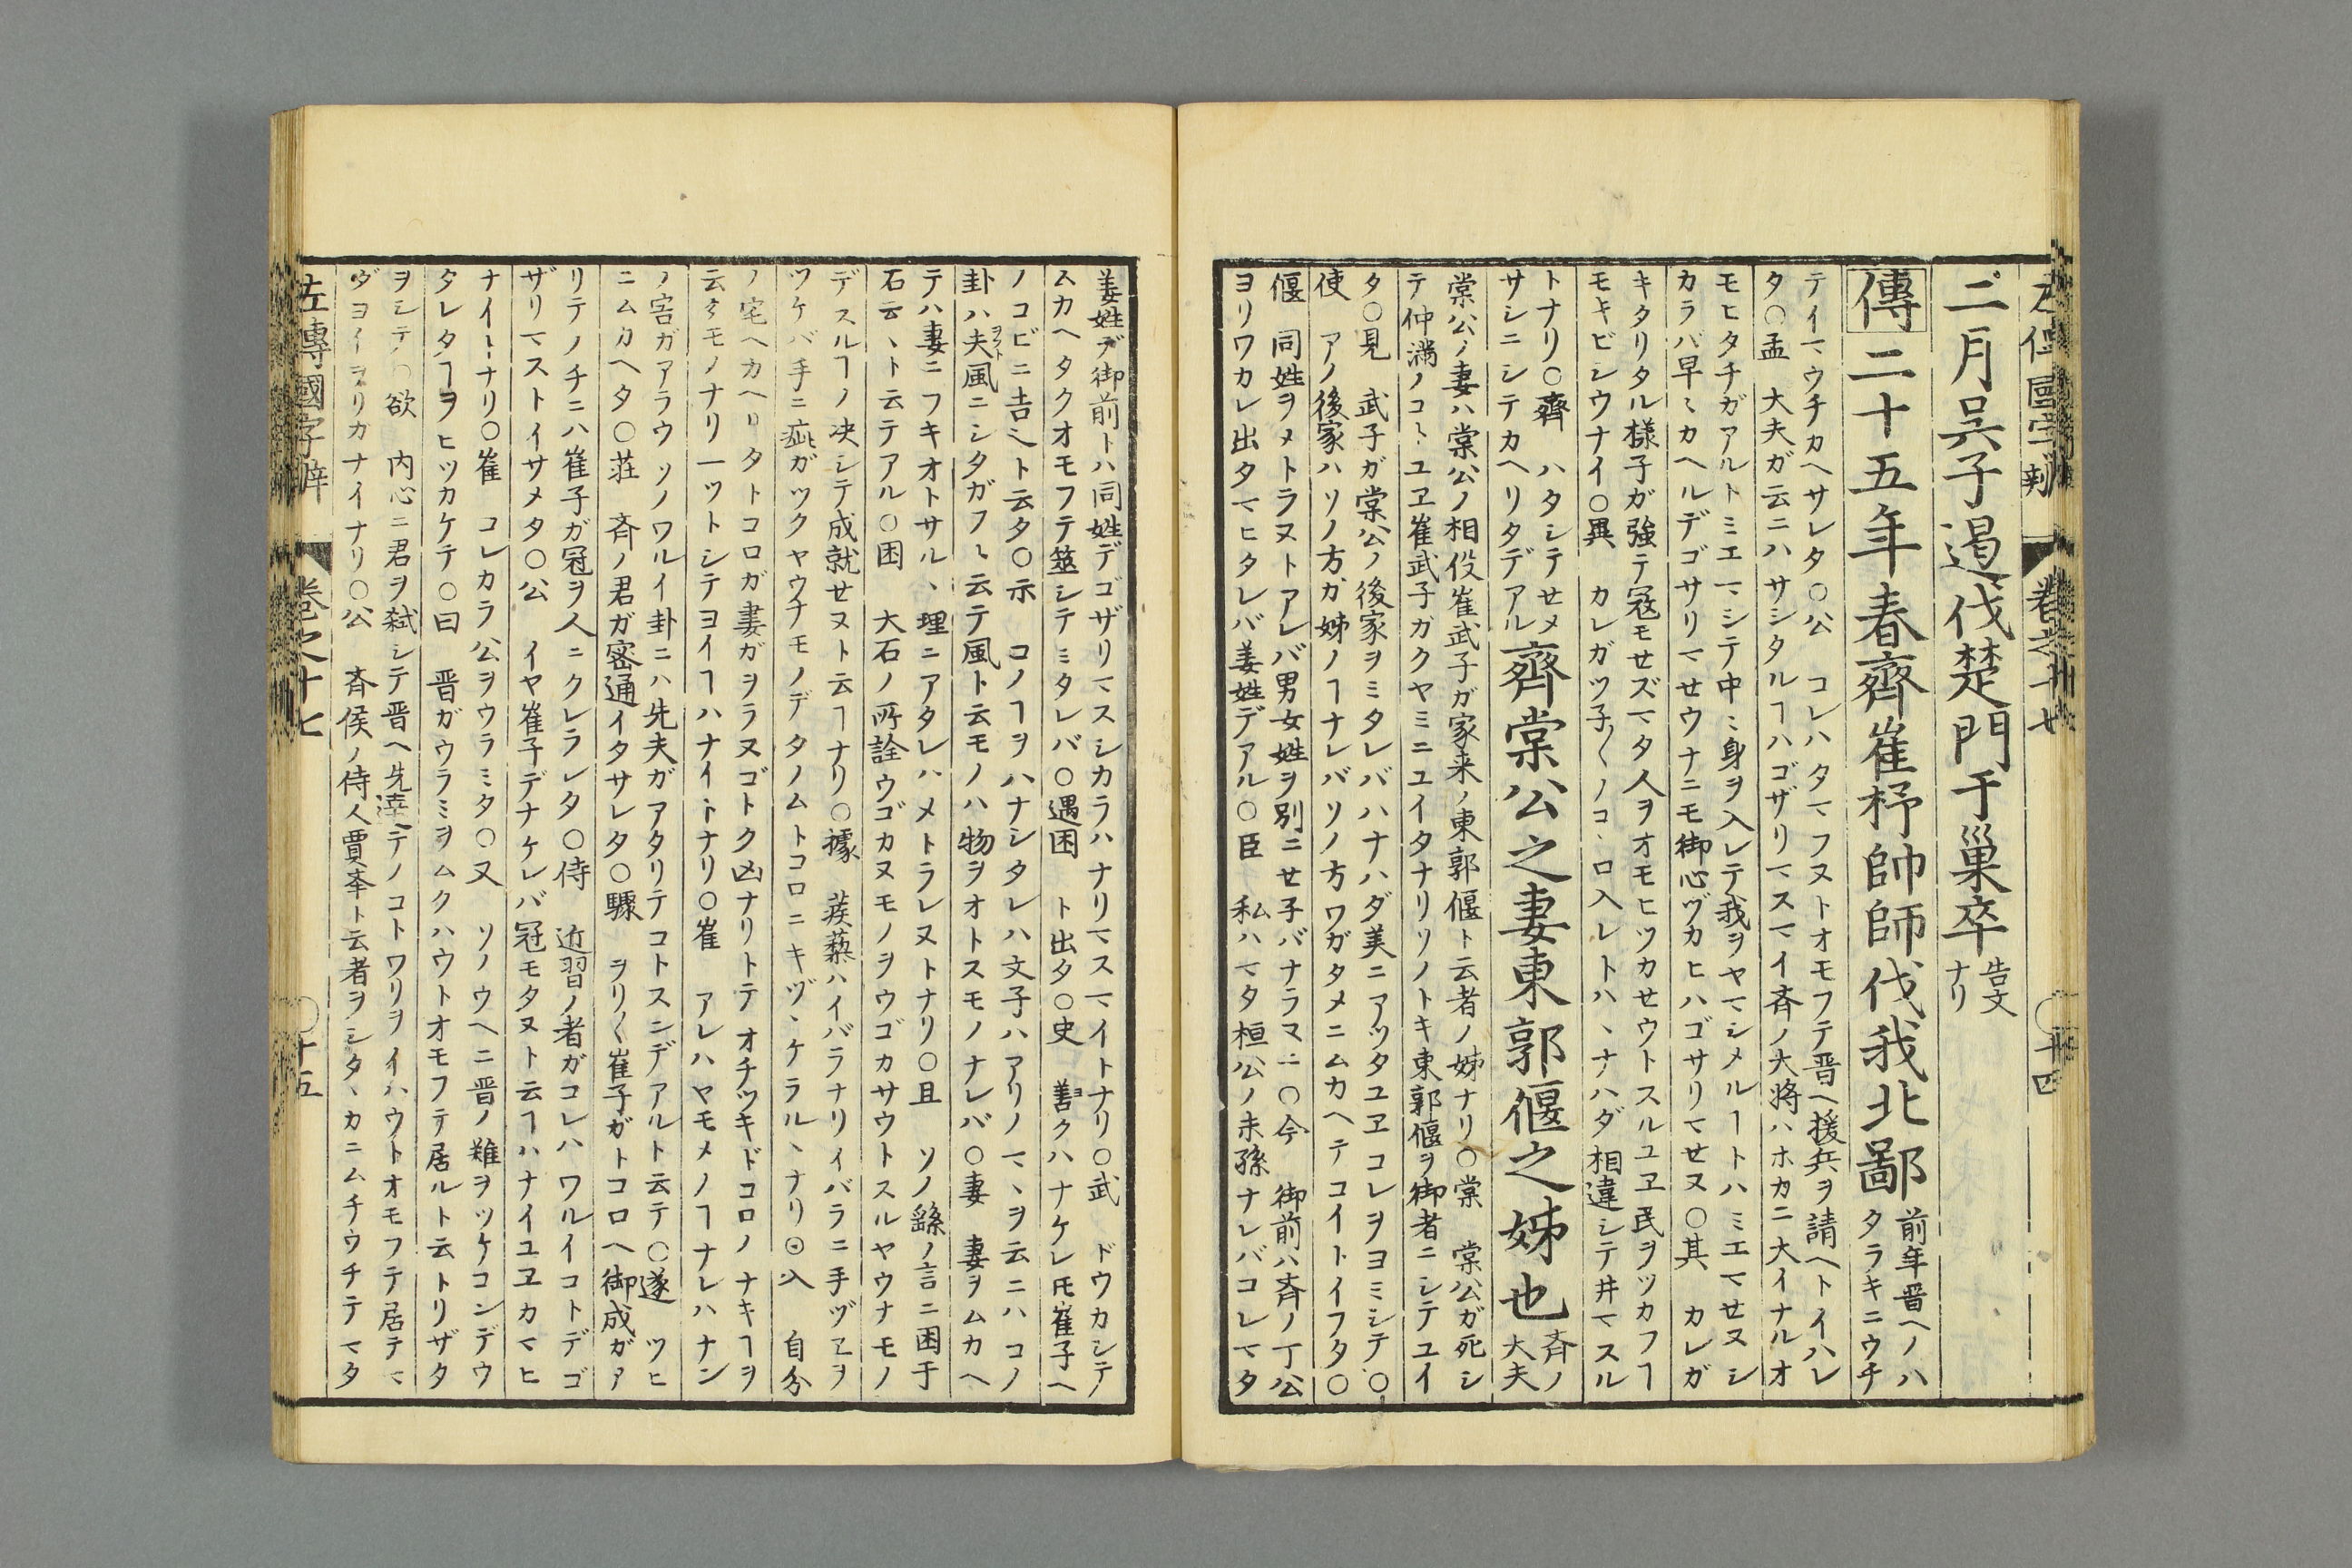 左傳國字辨 卷之十七 十四
二月吳子遏伐楚門于巢卒 告文ナリ
傳 二十五年春齊崔杼帥師伐我北鄙 前年晋ヘノハタラキニウチ
テイマウチカヘサレタ○公 コレハタマフヌトオモフテ晋ヘ援兵ヲ請ヘトイハレ
タ○孟 大夫ガ云ニハサシタルヿハゴザリマスマイ斉ノ大將ハホカニ大イナルオ
モヒタチガアルトミエマシテ中〻身ヲ入レテ我ヲヤマシメルヿトハミエマせヌシ
カラバ早〻カヘルデゴサリマせウナニモ御心ヅカヒハゴサリマせヌ○其 カレガ
キタリタル様子ガ強テ冦モせズマタ人ヲオモヒツカせウトスルユヱ民ヲツカフヿ
モキビシウナイ○異 カレガツ子〱ノコヽロ入レトハヽナハダ相違シテ井マスル
トナリ○齊 ハタシテせメ
サシニシテカヘリタデアル 齊棠公之妻東郭偃之姊也 斉ノ大夫
棠公ノ妻ハ棠公ノ相役崔武子ガ家来ノ東郭偃ト云者ノ姊ナリ○棠 棠公ガ死シ
テ仲満ノコトユヱ崔武子ガクヤミニユイタナリソノトキ東郭偃ヲ御者ニシテユイ
タ○見 武子ガ棠公ノ後家ヲミタレバハナハダ美ニアツタユヱコレヲヨミシテ○
使 アノ後家ハソノ方ガ姊ノヿナレバソノ方ワガタメニムカヘテコイトイフタ○
偃 同姓ヲメトラヌトアレバ男女姓ヲ別ニせ子バナラヌニ○今 御前ハ斉ノ丁公
ヨリワカレ出タマヒタレバ姜姓デアル○臣 私ハマタ桓公ノ末孫ナレバコレマタ
姜姓デ御前トハ同姓デゴザリマスシカラハナリマスマイトナリ○武 ドウカシテ
ムカヘタクオモフテ筮シテミタレバ○遇困 ト出タ○史 善クハナケレ𪜈崔子ヘ
ノコビニ吉ヘト云タ○示 コノヿヲハナシタレハ文子ハアリノマヽヲ云ニハコノ
卦ハ夫風ニシタガフヽ云テ風ト云モノハ物ヲオトスモノナレバ○妻 妻ヲムカヘ
テハ妻ニフキオトサルヽ埋ニアタレハメトラレヌトナリ○且 ソノ繇ノ言ニ困于
石云〻ト云テアル○困 大石ノ所詮ウゴカヌモノヲウゴカサウトスルヤウナモノ
デスルヿノ决シテ成就せヌト云ヿナリ○據 蒺蔾ハイバラナリイバラニ手ヅヱヲ
ツケバ手ニ疵ガツクヤウナモノデタノムトコロニキヅヽケラルヽナリ⊙入 自分
ノ宅ヘカヘリタトコロガ妻ガヲラヌゴトク凶ナリトテオチツキドコロノナキヿヲ
云タモノナリ一ツトシテヨイヿハナイトナリ○崔 アレハヤモメノヿナレハナン
ノ害ガアラウソノワルイ卦ニハ先夫ガアタリテコトスンデアルト云テ○遂 ツヒ
ニムカヘタ○荘 斉ノ君ガ密通イタサレタ○驟 ヲリ〱崔子ガトコロヘ御成ガア
リテノチニハ崔子ガ冠ヲ人ニクレラレタ○侍 近習ノ者ガコレハワルイコトデゴ
ザリマストイサメタ○公 イヤ崔子デナケレバ冠モタヌト云ヿハナイユヱカマヒ
ナイトナリ○崔 コレカラ公ヲウラミタ○又 ソノウヘニ晋ノ難ヲツケコンデウ
タレタヿヲヒツカケテ○曰 晋ガウラミヲムクハウトオモフテ居ルト云トリザタ
ヲシテ○欲 内心ニ君ヲ弑シテ晋ヘ先達テノコトワリヲイハウトオモフテ居テモ
ヅヨイヲリカナイナリ○公 斉侯ノ侍人賈挙ト云者ヲシタヽカニムチウチテマタ
左傳國字辨 卷之十七 十五